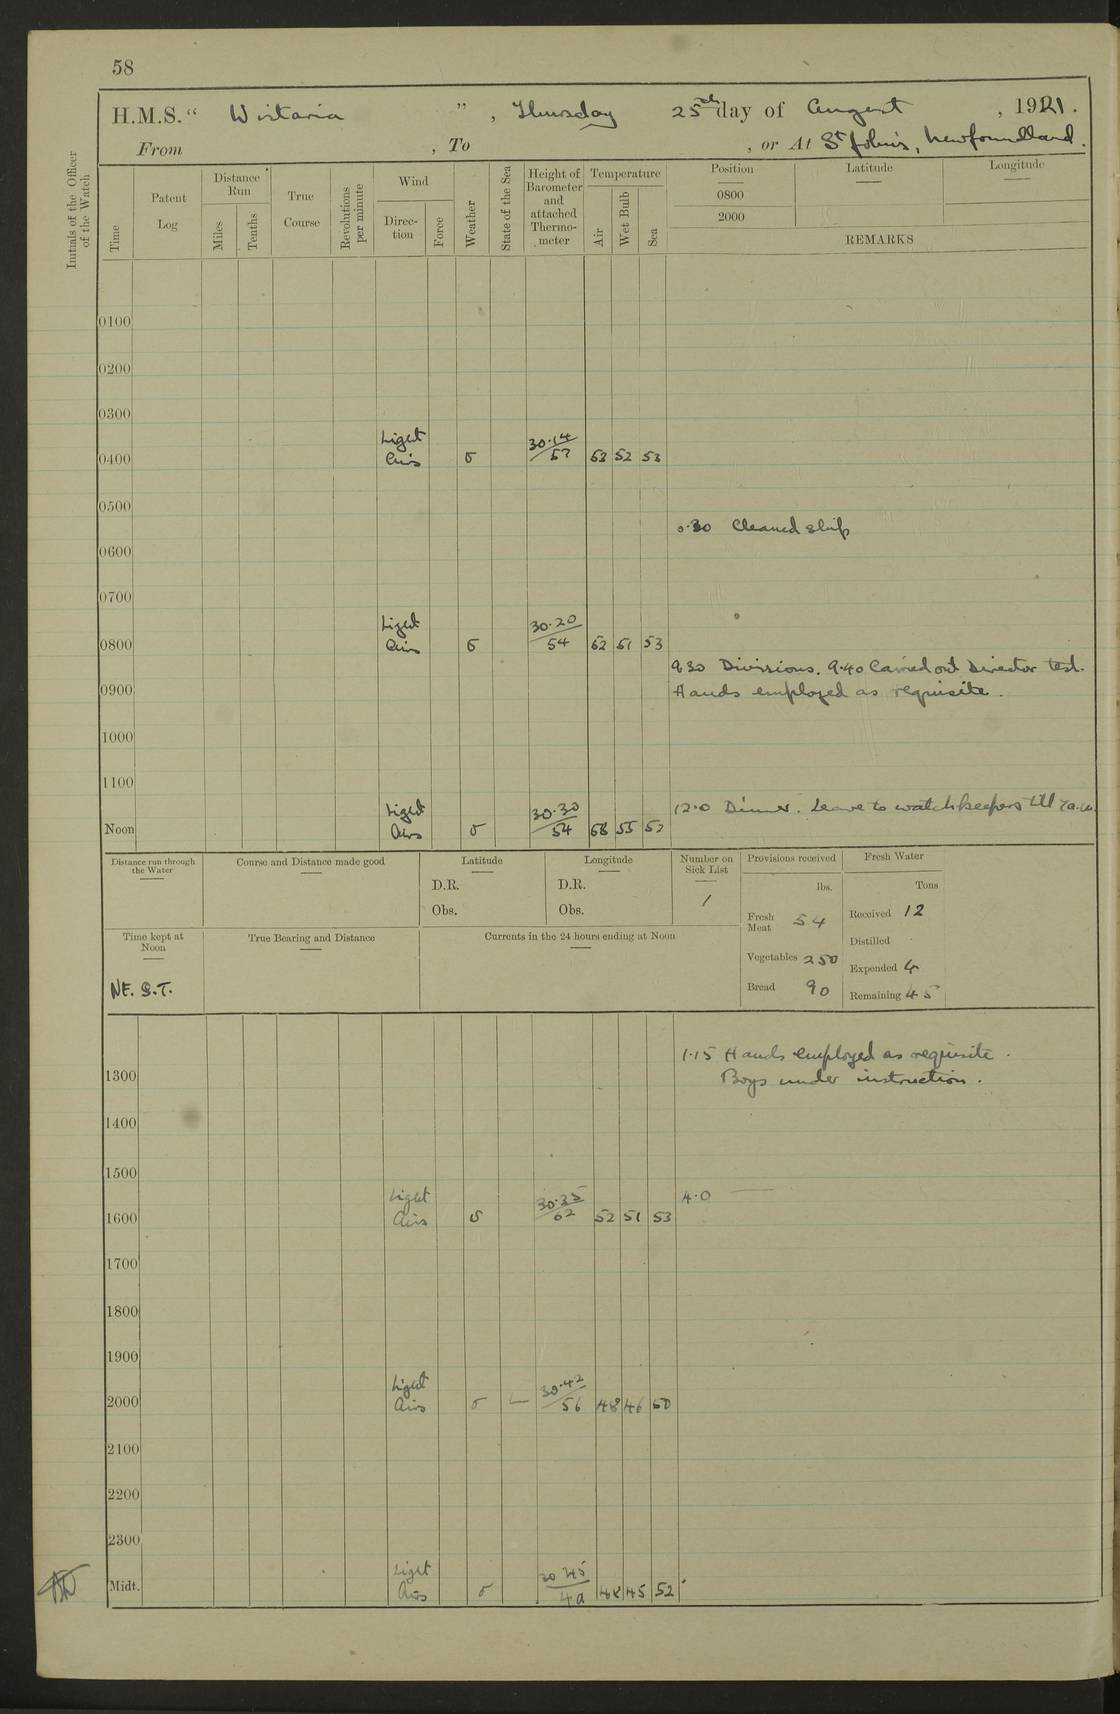 58
H.M.S. “ Wistaria ” , Thursday 25th day of August , 1921.
From , To , or At St John's, Newfoundland.
Initials of the Officer of the Watch
Time
Patent Log
Distance Run
Miles
Tenths
True Course
Revolutions per minute
Wind
Direction
Force
Weather
State of the Sea
Height of Barometer and attached Thermometer
Temperature
Air
Wet Bulb
Sea
Position
0800
2000
Latitude
Longitude
REMARKS
0100
0200
0300
0400 Light Airs o 30.14 57 53 52 53
0500
Cleaned ship
0600
0700
0800 Light Airs o 30.20 54 52 51 53
9.30 Divisions. 9.40 Carried out Director test.
Hands employed as requisite.
0900
1000
1100
12.0 Dinner. Leave to watchkeepers till 7 a.m.
Noon Light Airs o 30.30 54 58 55 52
Distance run through the Water
Course and Distance made good
Latitude
D.R.
Obs.
Longitude
D.R.
Obs.
Number on Sick List
1
Provisions received
lbs.
Fresh Meat 54
Vegetables 250
Bread 90
Fresh Water
Tons
Received 12
Distilled
Expended 4
Remaining 45
Time kept at Noon
NF. S.T.
True Bearing and Distance
Currents in the 24 hours ending at Noon
1.15 Hands employed as requisite.
Boys under instruction.
1300
1400
1500
4.0 —
1600 Light Airs o 30.35 62 52 51 53
1700
1800
1900
2000 Light Airs o — 30.42 56 48 46 50
2100
2200
2300
Midt. Light Airs o 30.45 48 45 52